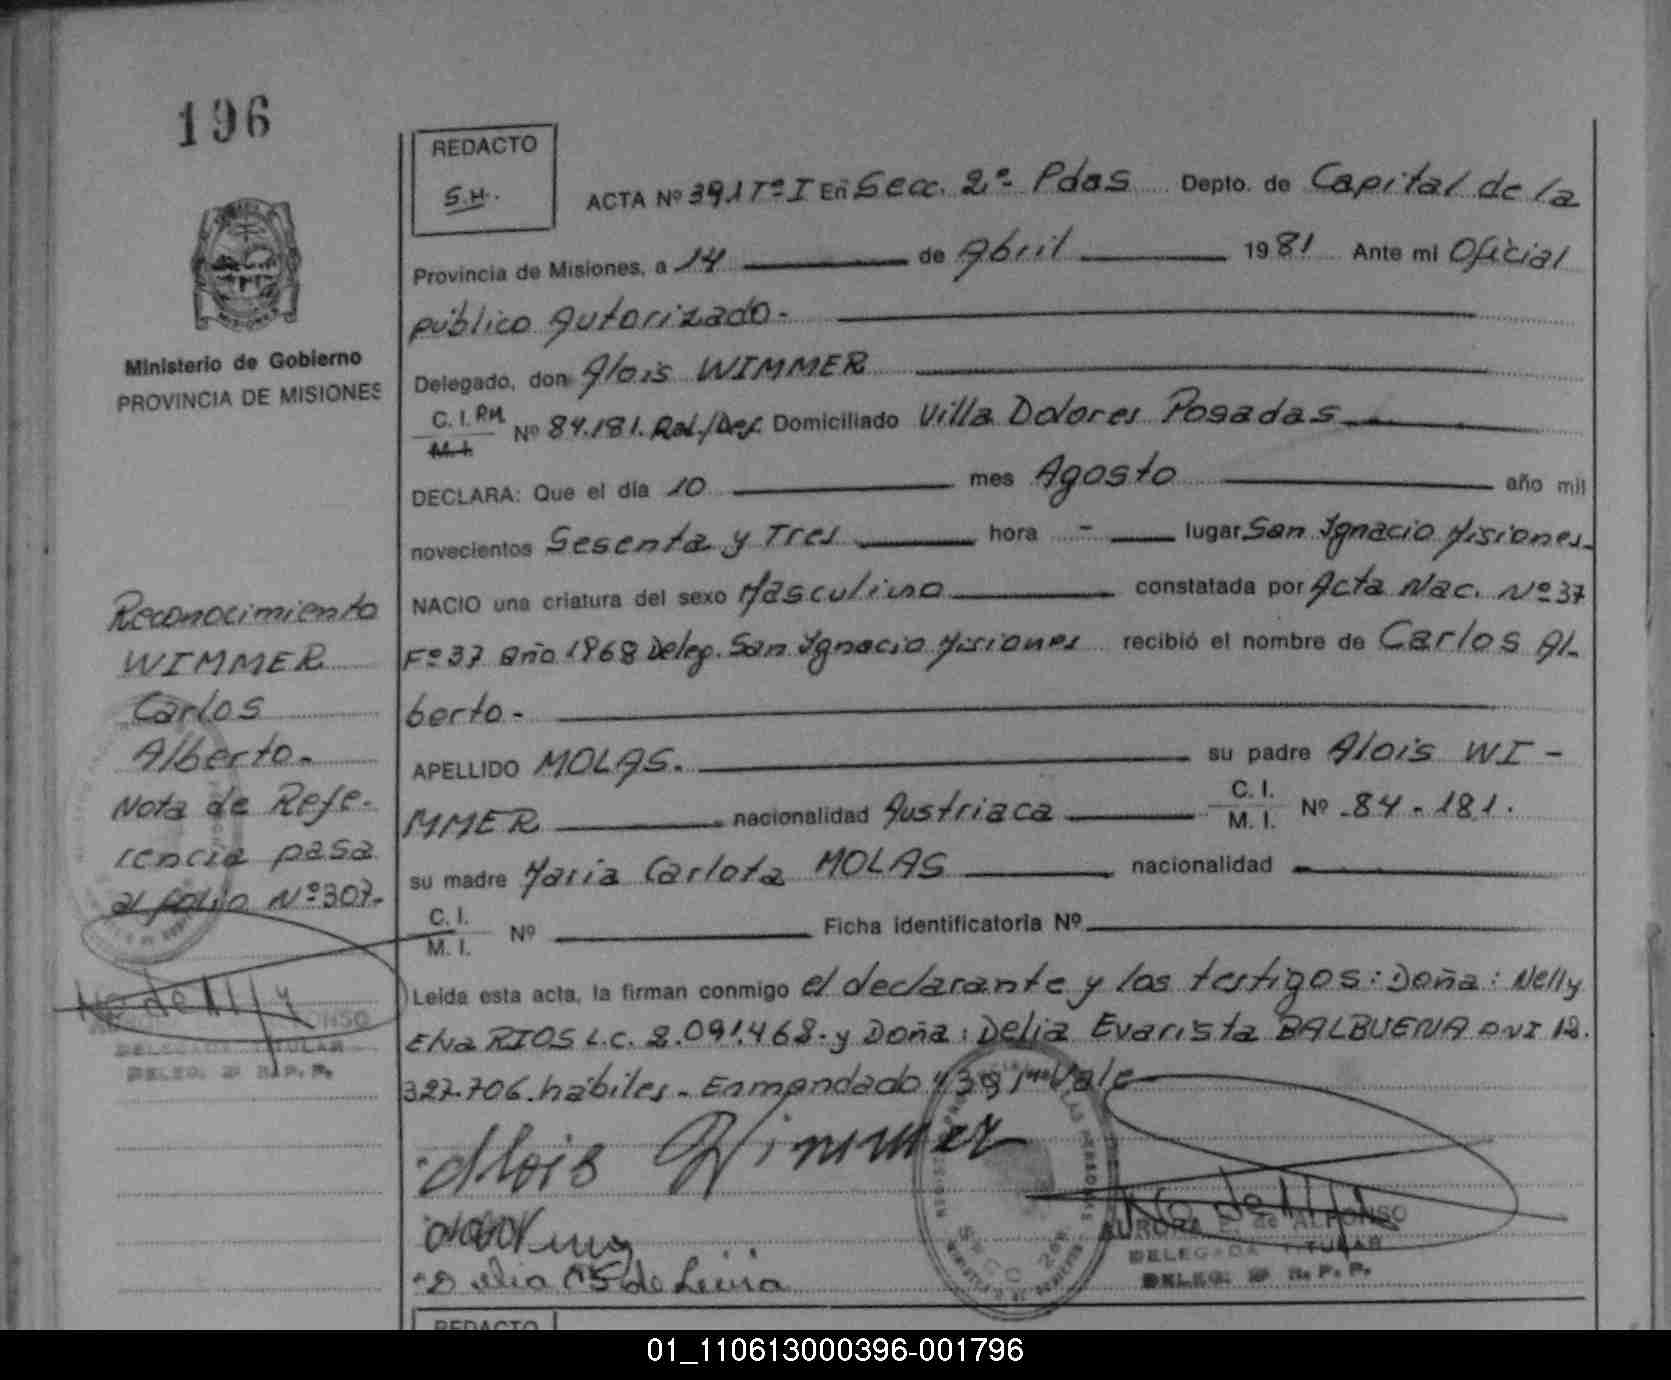 196
REDACTO
S.H.
ACTA Nº 391 Tº I En Secc. 2º Pdas Depto. de Capital de la
Provincia de Misiones, a 14 de Abril 1981 Ante mi Oficial
público Autorizado.-
Ministerio de Gobierno
PROVINCIA DE MISIONES
Delegado, don Alois WIMMER
C. I. RM. M. I. Nº 84.181. Rad./Def. Domiciliado Villa Dolores Posadas
DECLARA: Que el día 10 mes Agosto año mil
novecientos Sesenta y Tres hora - lugar San Ignacio Misiones.
NACIO una criatura del sexo Masculino constatada por Acta Nac. Nº 37
Fº 37 Año 1968 Deleg. San Ignacio Misiones recibió el nombre de Carlos Al-
berto.-
APELLIDO MOLAS. su padre Alois WI-
MMER nacionalidad Austriaca C. I. M. I. Nº 84.181.
su madre Maria Carlota MOLAS nacionalidad
C. I. M. I. Nº Ficha identificatoria Nº
Leida esta acta, la firman conmigo el declarante y los testigos: Doña: Nelly
Elva RIOS L.C. 2.091.468. y Doña: Delia Evarista BALBUENA DNI 12.
327.706. hábiles. Enmendado "391" Vale
Reconocimiento
WIMMER
Carlos
Alberto.-
Nota de Refe-
rencia pasa
al folio Nº 307.-
DELEGADA TITULAR
DELEG. 2ª R. P. P.
Alois Wimmer
AURORA E. de ALFONSO
DELEGADA TITULAR
DELEG. 2ª R. P. P.
REDACTO
01_110613000396-001796